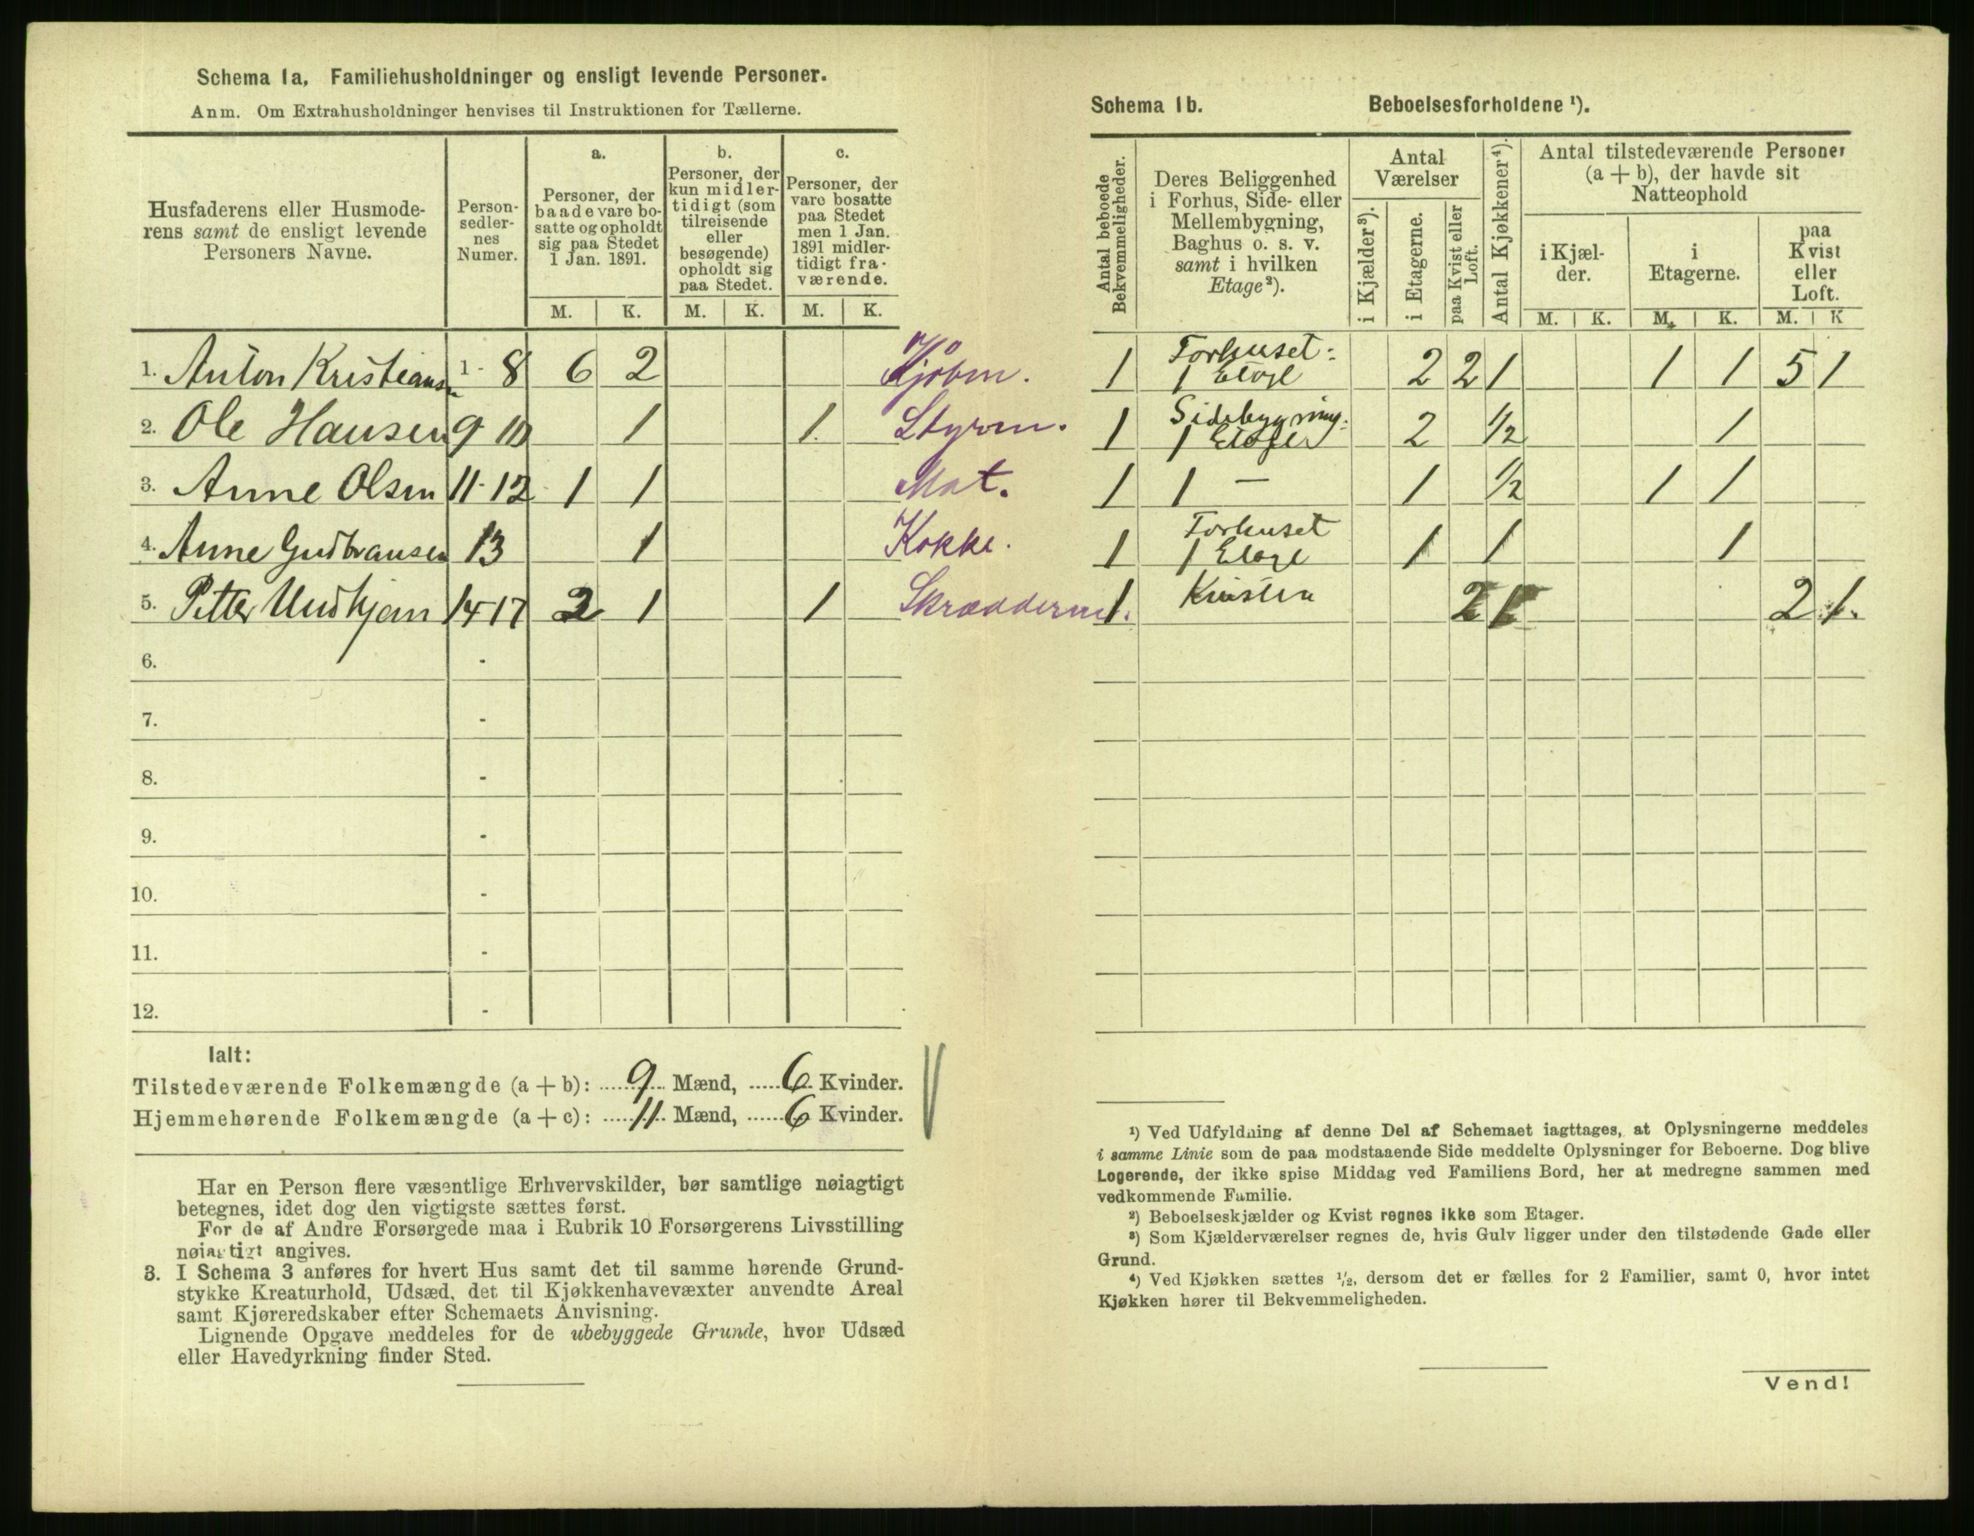 Schema 1a. Familiehusholdninger og ensligt levende Personer.
Anm. Om Extrahusholdninger henvises til Instruktionen for Tællerne.
Husfaderens eller Husmode-
rens samt de ensligt levende
Personers Navne.
Person-
sedler-
nes
Numer.
a.
Personer, der
baade vare bo-
satte og opholdt
sig paa Stedet
1 Jan. 1891.
b.
Personer, der
kun midler-
tidigt (som
tilreisende
eller
besøgende)
opholdt sig
paa Stedet.
c.
Personer, der
vare bosatte
paa Stedet
men 1 Jan.
1891 midler-
tidigt fra-
værende.
M. K. M. K. M. K.
1. Anton Kristiansen 1 - 8 6 2 Kjøbm.
2. Ole Hansen 9 - 10 1 1 Styrm.
3. Anne Olsen 11 - 12 1 1 Mat.
4. Anne Gudbransen 13 1 Kokke.
5. Petter 14 17 2 1 1
6. -
7. -
8. -
9. -
10. -
11. -
12. -
Ialt:
Tilstedeværende Folkemængde (a + b): 9 Mænd, 6 Kvinder.
Hjemmehørende Folkemængde (a + c): 11 Mænd, 6 Kvinder.
Har en Person flere væsentlige Erhvervskilder, bør samtlige nøiagtigt
betegnes, idet dog den vigtigste sættes først.
For de af Andre Forsørgede maa i Rubrik 10 Forsørgerens Livsstilling
nøiagtigt angives.
3. I Schema 3 anføres for hvert Hus samt det til samme hørende Grund-
stykke Kreaturhold, Udsæd, det til Kjøkkenhavevæxter anvendte Areal
samt Kjøreredskaber efter Schemaets Anvisning.
Lignende Opgave meddeles for de ubebyggede Grunde, hvor Udsæd
eller Havedyrkning finder Sted.
Schema 1b. Beboelsesforholdene ¹).
Antal beboede
Bekvemmeligheder.
Deres Beliggenhed
i Forhus, Side- eller
Mellembygning,
Baghus o. s. v.
samt i hvilken
Etage ²).
Antal
Værelser
i Kjælder ³).
i Etagerne.
paa Kvist eller
Loft.
Antal Kjøkkener ⁴).
Antal tilstedeværende Personer
(a + b), der havde sit
Natteophold
i Kjæl-
der.
i
Etagerne.
paa
Kvist
eller
Loft.
M. K. M. K. M. K
1 Forhuset: 1 Etage 2 2 1 1 1 5 1
1 Sidebygning: 1 Etager 2 1/2 1
1 1 — 1 1/2 1 1
1 Forhuset 1 Etage 1 1 1
1 2 1 2 1.
¹) Ved Udfyldning af denne Del af Schemaet iagttages, at Oplysningerne meddeles
i samme Linie som de paa modstaaende Side meddelte Oplysninger for Beboerne. Dog blive
Logerende, der ikke spise Middag ved Familiens Bord, her at medregne sammen med
vedkommende Familie.
²) Beboelseskjælder og Kvist regnes ikke som Etager.
³) Som Kjælderværelser regnes de, hvis Gulv ligger under den tilstødende Gade eller
Grund.
⁴) Ved Kjøkken sættes ½, dersom det er fælles for 2 Familier, samt 0, hvor intet
Kjøkken hører til Bekvemmeligheden.
Vend!